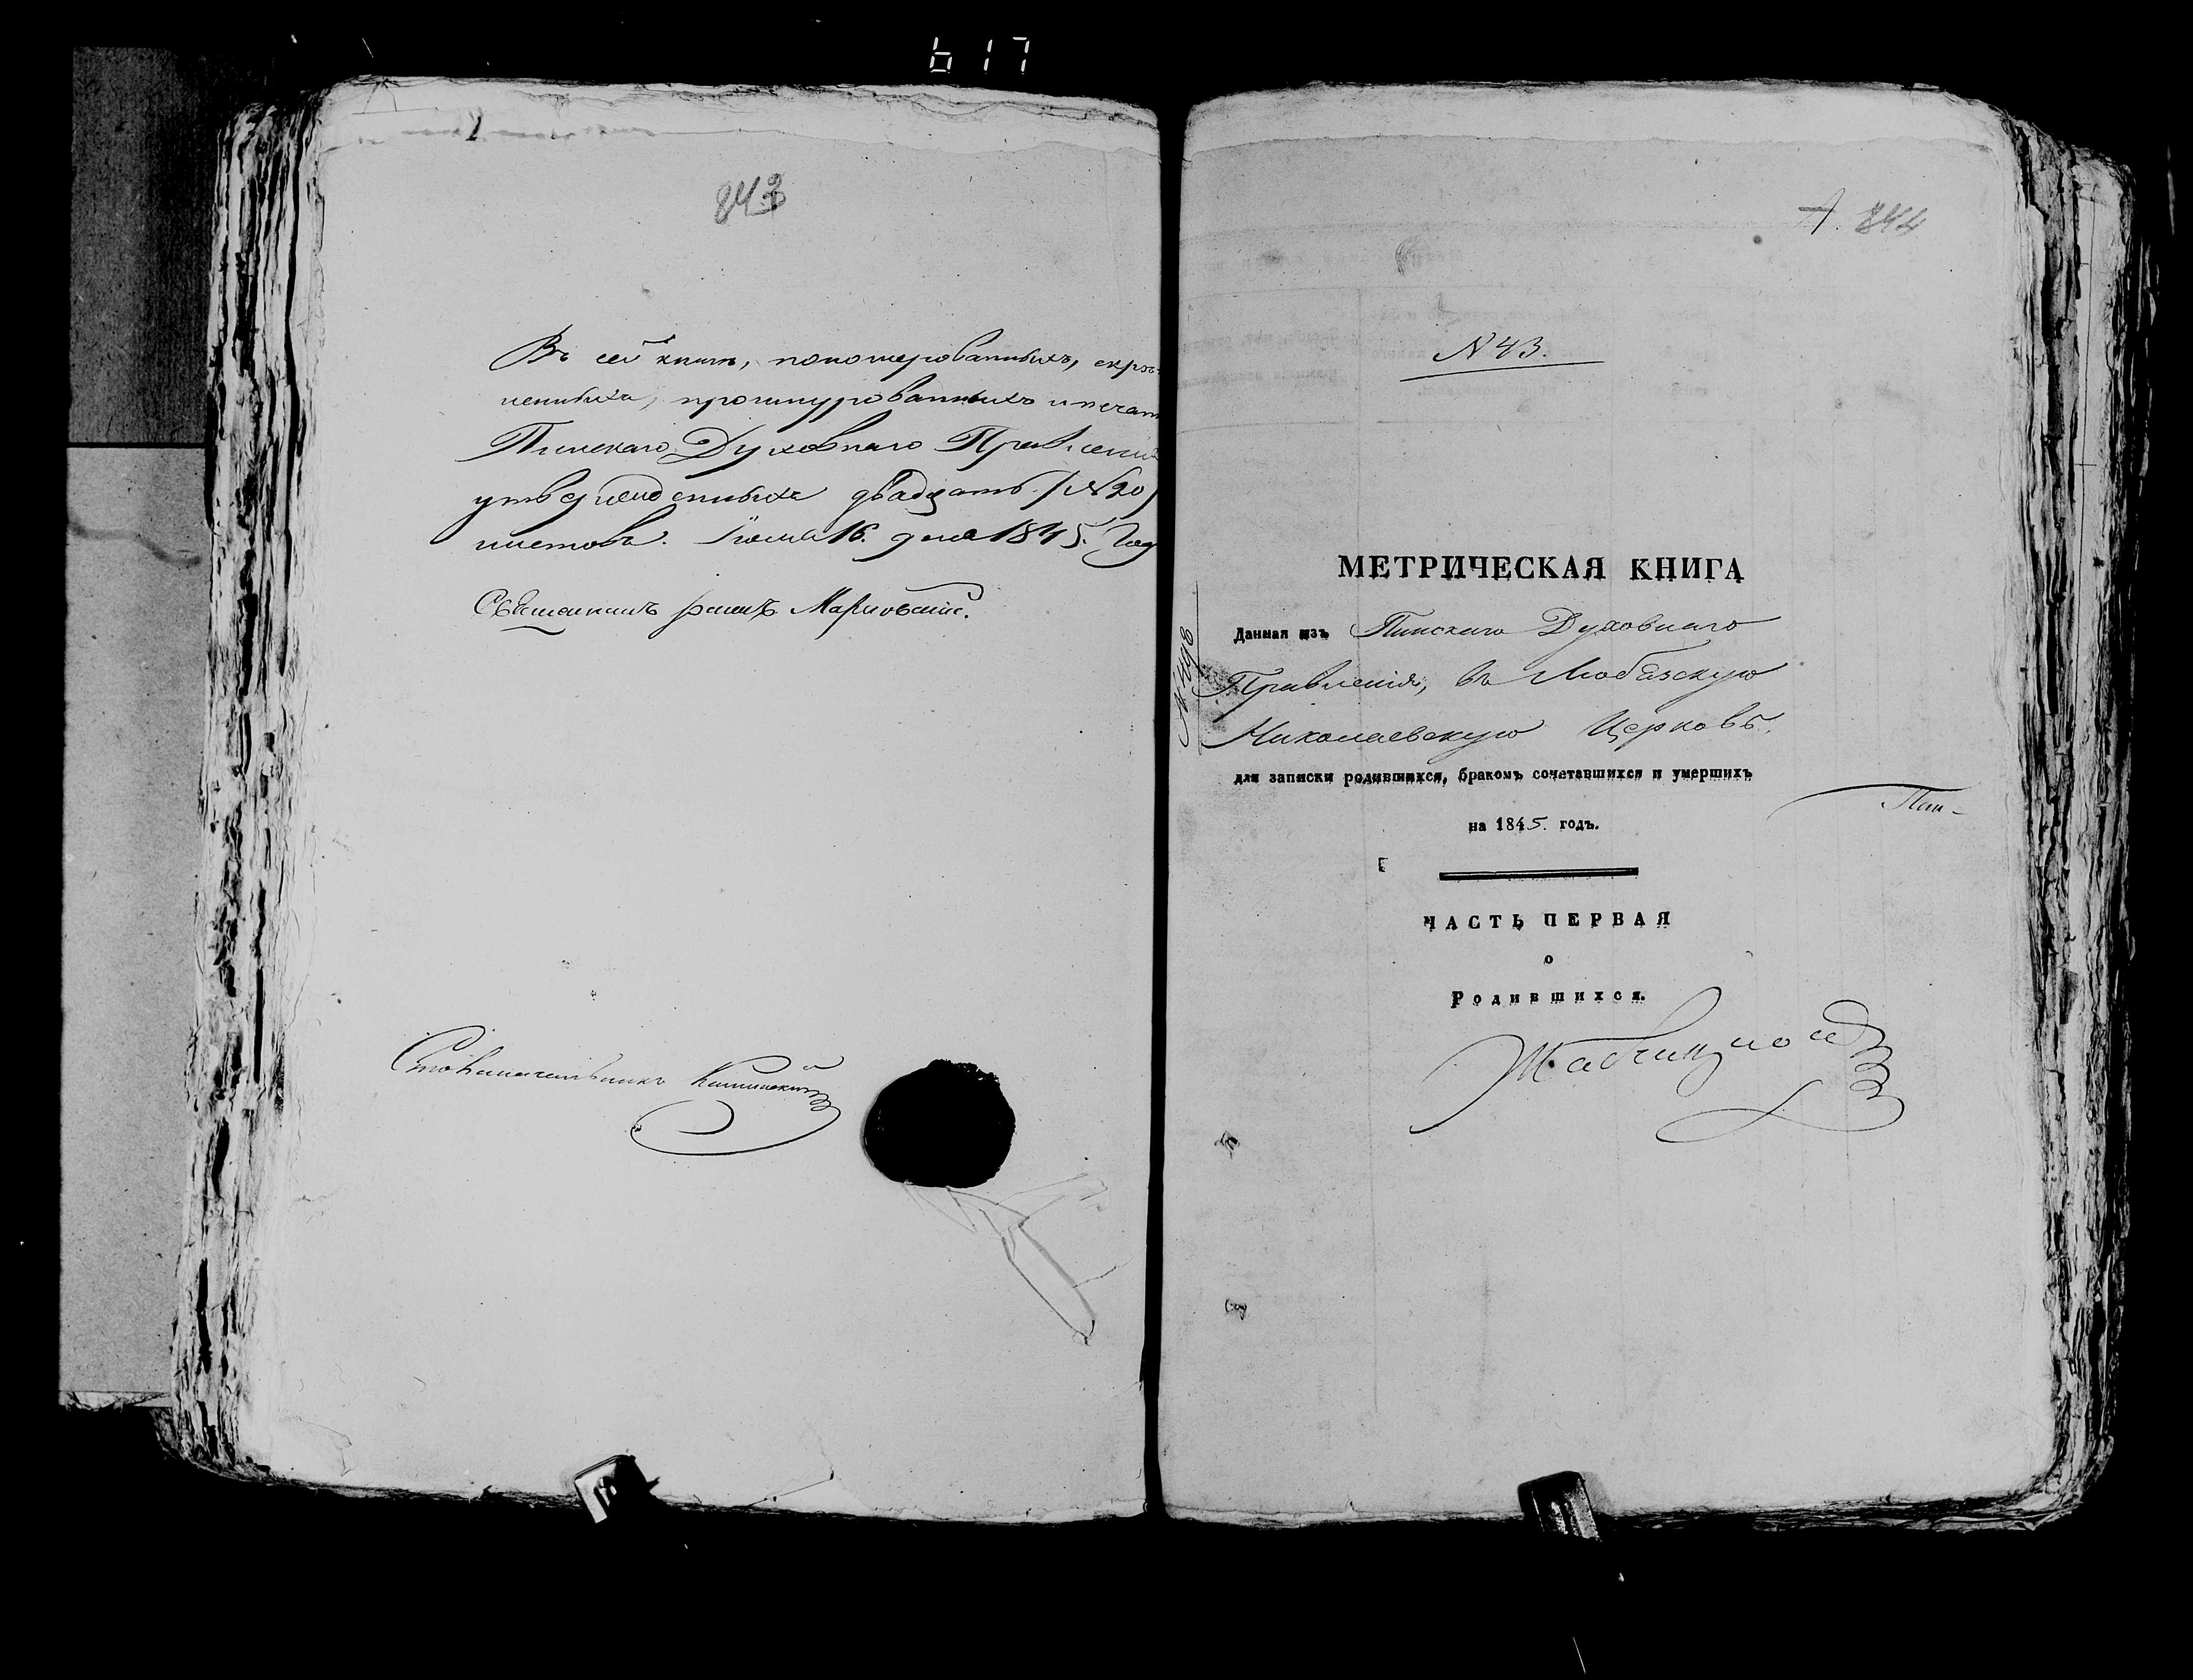 617
843
Въ сей книгѣ, пономерованныхъ, скрѣ-
пенныхъ, прошнурованныхъ и печат
Пинскаго Духовнаго Правленія
утвержденныхъ двадцать (№20)
листовъ. Іюня 16. дня 1845. Год
Священникъ Марковскій.
Столоначальникъ
A. 844
N 43.
МЕТРИЧЕСКАЯ КНИГА
Данная изъ Пинскаго Духовнаго
Правленія, въ Любязскую
Николаевскую Церковь,
для записки родившихся, бракомъ сочетавшихся и умершихъ
на 1845. годъ.
Пин-
ЧАСТЬ ПЕРВАЯ
о
Родившихся.